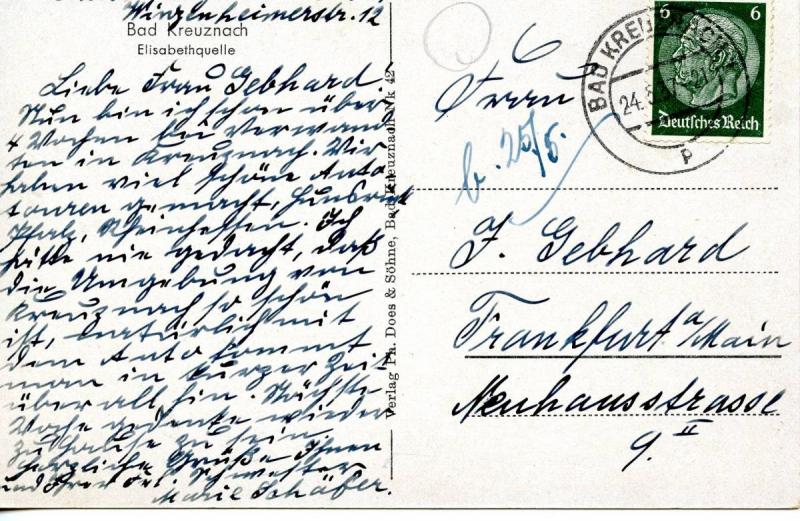 Winzenheimerstr. 12
Bad Kreuznach
Elisabethquelle
Liebe Frau Gebhard,
Nun bin ich schon über
4 Wochen bei Verwand
ten in Kreuznach. Wir
haben viel schöne Auto
touren gemacht, Hunsrück
Pfalz, Rheinhessen. Ich
hätte nie gedacht, daß
die Umgebung von
Kreuznach so schön
ist, natürlich mit
dem Auto kommt
man in kurzer Zeit
über all hin. Nächste
Woche gedenke wieder
zu Hause zu sein
herzliche Grüße Ihnen
und Ihrer Frl. Schwester
Marie Schäfer.
Verlag Ph. Does & Söhne, Bad Kreuznach Nr. 42
6 6
Deutsches Reich
BAD KREUZNACH
24.5.
P
Frau
b. 25/5.
F. Gebhard
Frankfurt a/Main
Neuhausstrasse
9. II